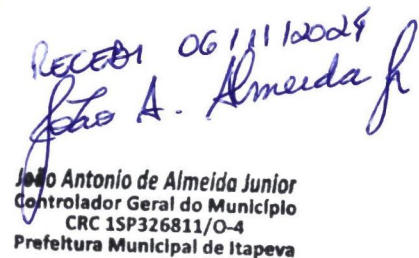 RECEBI 06/11/2024
João A. Almeida Jr
João Antonio de Almeida Junior
Controlador Geral do Município
CRC 1SP326811/O-4
Prefeitura Municipal de Itapeva